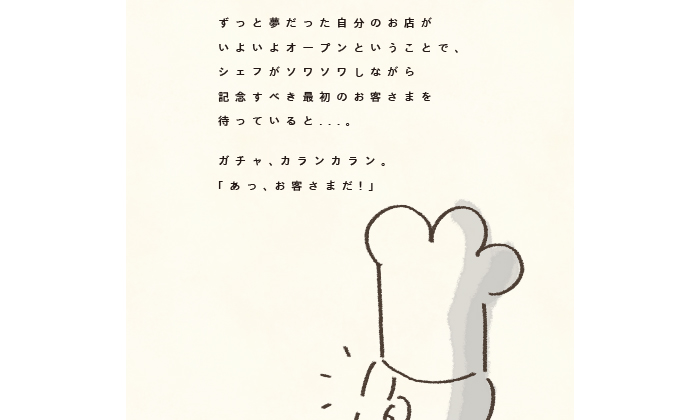 ずっと夢だった自分のお店が
いよいよオープンということで、
シェフがソワソワしながら
記念すべき最初のお客さまを
待っていると...。
ガチャ、カランカラン。
「あっ、お客さまだ!」